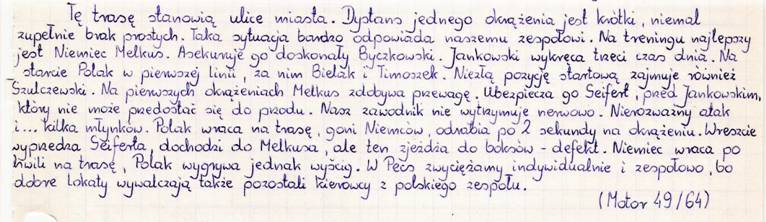 Tę trasę stanowią ulice miasta. Dystans jednego okrążenia jest krótki, niemal
zupełnie brak prostych. Taka sytuacja bardzo odpowiada naszemu zespołowi. Na treningu najlepszy
jest Niemiec Melkus. Asekuruje go doskonały Byczkowski. Jankowski wykręca trzeci czas dnia. Na
starcie Polak w pierwszej linii, za nim Bielak i Timoszek. Niezłą pozycję startową zajmuje również
Szulczewski. Na pierwszych okrążeniach Melkus zdobywa przewagę. Ubezpiecza go Seifert, przed Jankowskim,
który nie może przedostać się do przodu. Nasz zawodnik nie wytrzymuje nerwowo. Nierozważny atak
i... kilka młynków. Polak wraca na trasę, goni Niemców, odrabia po 2 sekundy na okrążeniu. Wreszcie
wyprzedza Seiferta, dochodzi do Melkusa, ale ten zjeżdża do boksów - defekt. Niemiec wraca po
chwili na trasę, Polak wygrywa jednak wyścig. W Pecs zwyciężamy indywidualnie i zespołowo, bo
dobre lokaty wywalczają także pozostali kierowcy z polskiego zespołu.
(Motor 49/64)